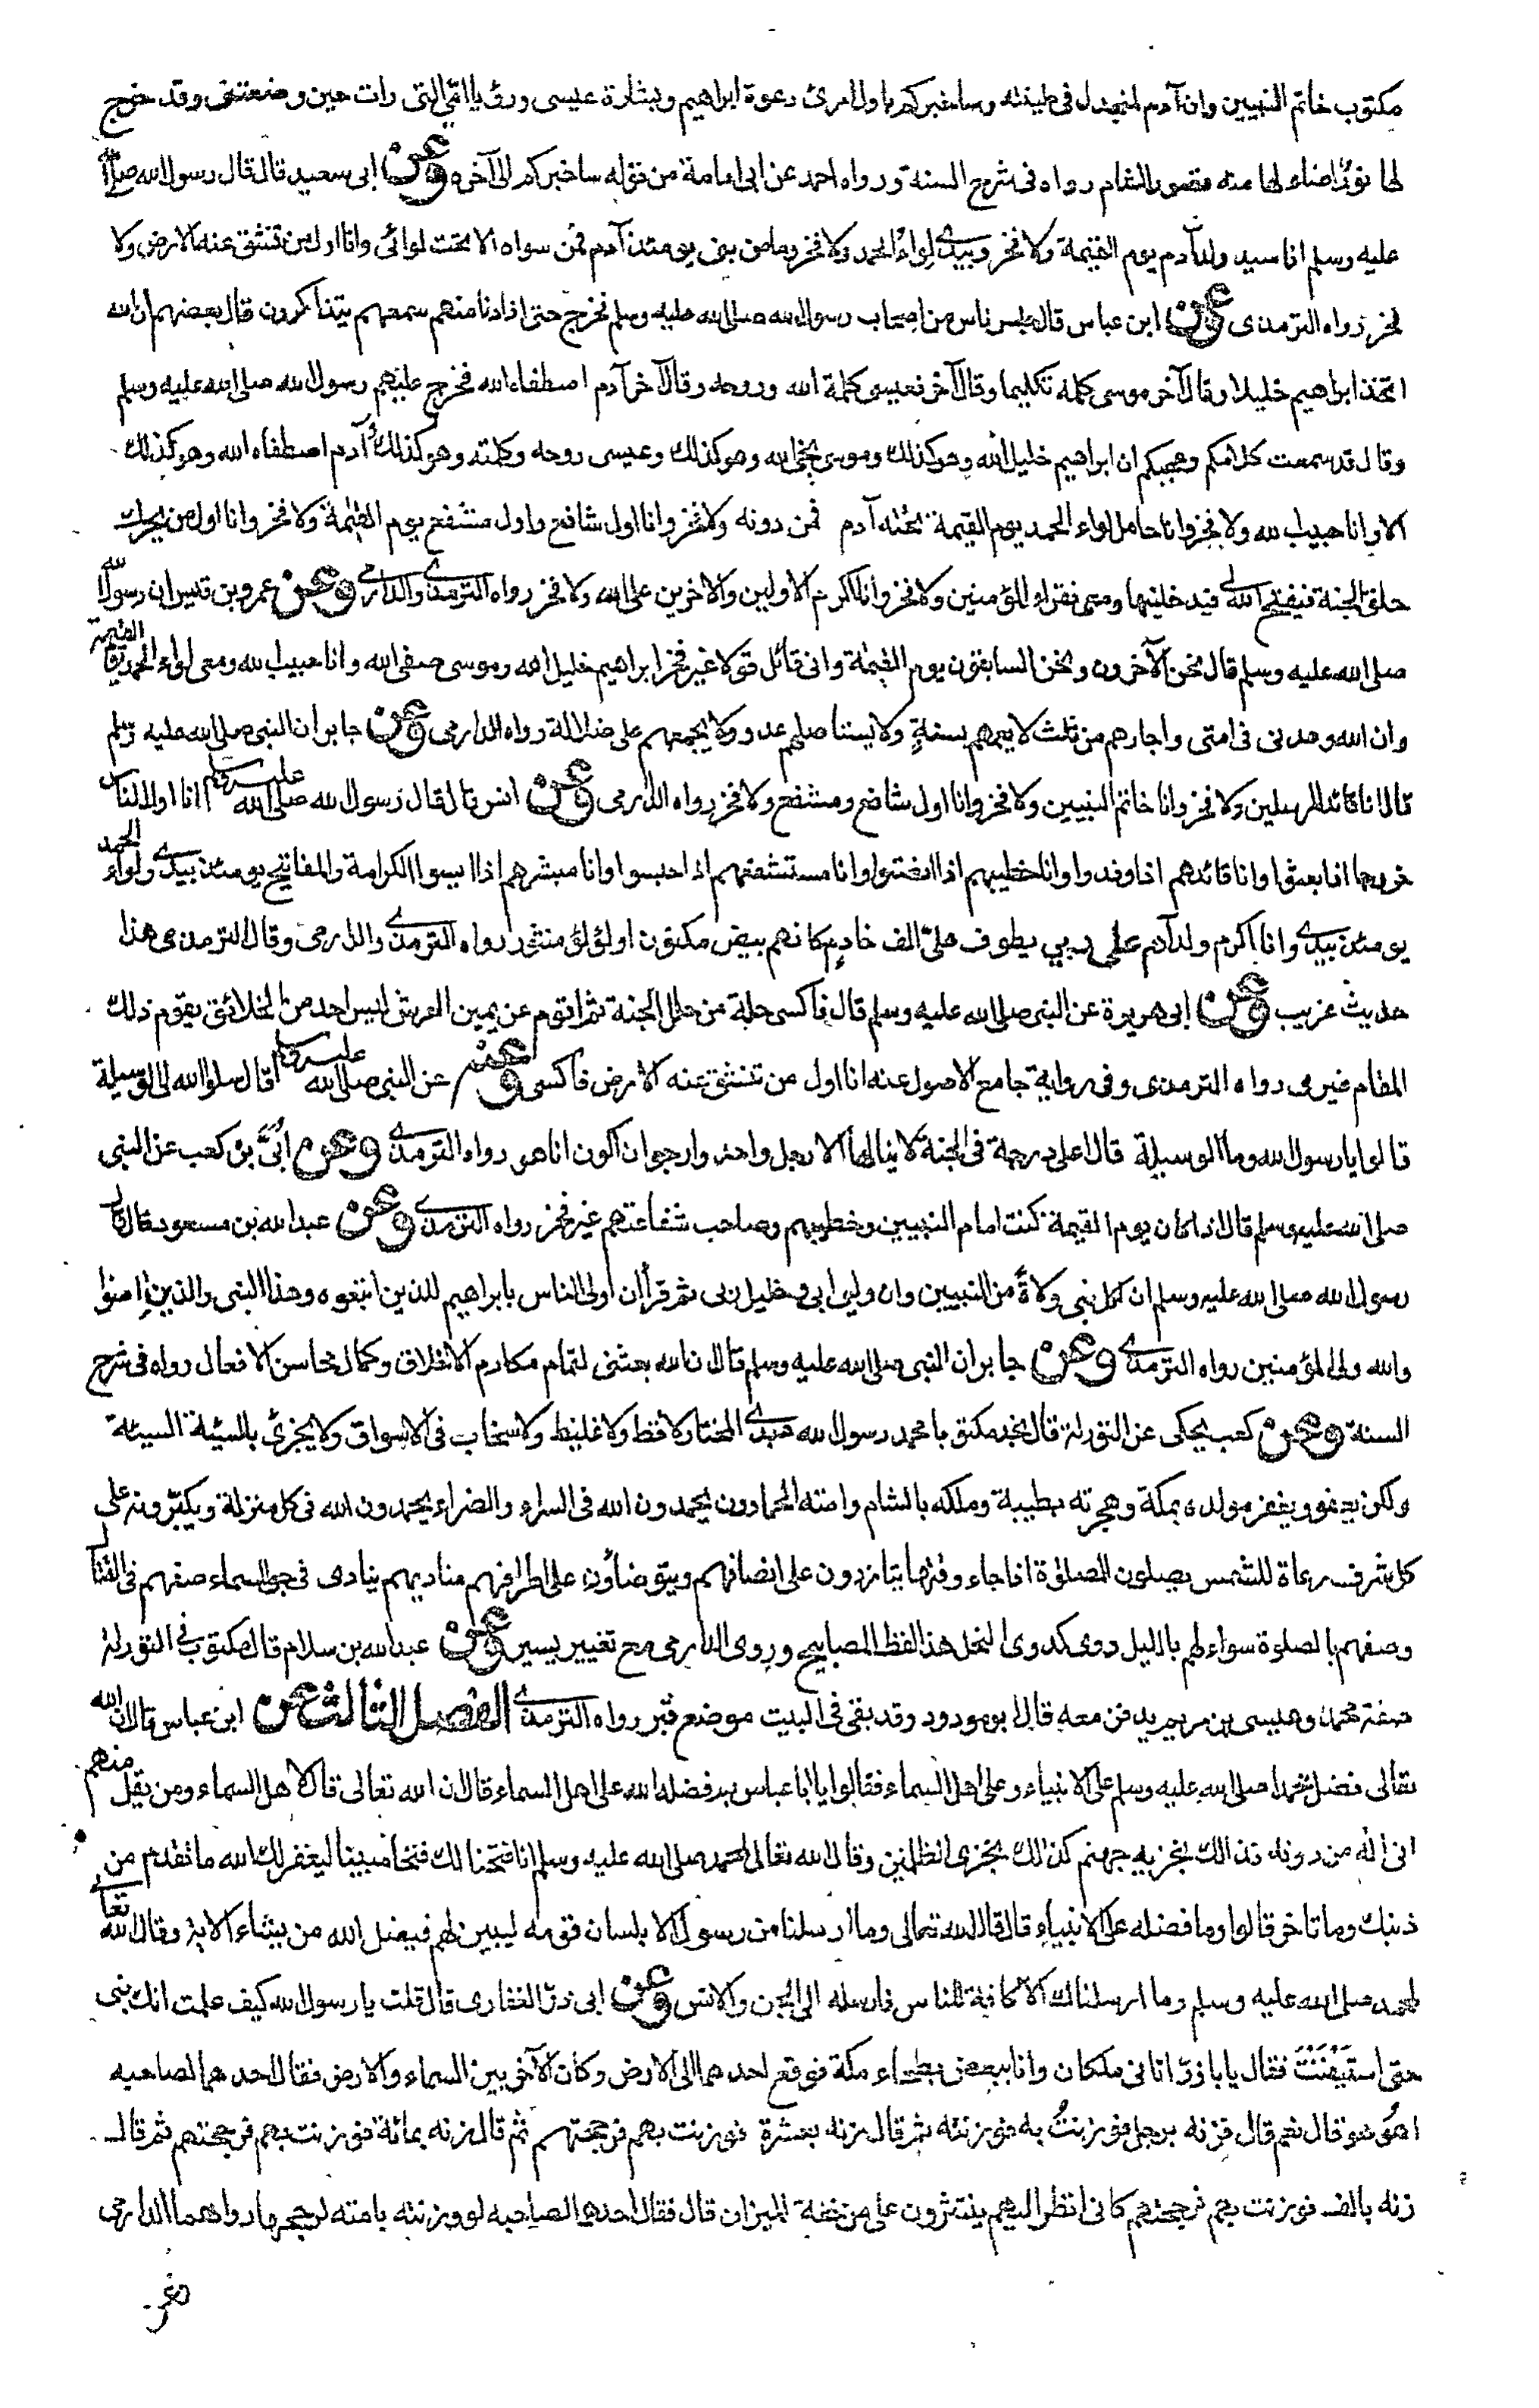 مكتوب خاتم النبيين وان آدم لمنجدل فى طينته وساخبركم باول امرى دعوة ابراهيم وبشارة عيسى ورؤيا امى التى رات حين وضعتنى وقد خرج
لها نور اضاء لها منه قصور الشام رواه فى شرح السنة ورواه احمد عن ابى امامة من قوله ساخبركم الى آخره وعن ابى سعيد قال قال رسول الله صلى الله
عليه وسلم انا سيد ولد آدم يوم القيمة ولا فخر وبيدى لواء الحمد ولا فخر وما من نبى يومئذ آدم فمن سواه الا تحت لوائى وانا اول من تنشق عنه الارض ولا
فخر رواه الترمذى وعن ابن عباس قال جلس ناس من اصحاب رسول الله صلى الله عليه وسلم فخرج حتى اذا دنا منهم سمعهم يتذاكرون قال بعضهم ان الله
اتخذ ابراهيم خليلا وقال آخر موسى كلمه تكليما وقال آخر فعيسى كلمة الله وروحه وقال آخر آدم اصطفاه الله فخرج عليهم رسول الله صلى الله عليه وسلم
وقال قد سمعت كلامكم وعجبكم ان ابراهيم خليل الله وهو كذلك وموسى نجى الله وهو كذلك وعيسى روحه وكلمته وهو كذلك وآدم اصطفاه الله وهو كذلك
الا وانا حبيب الله ولا فخر وانا حامل لواء الحمد يوم القيمة تحته آدم فمن دونه ولا فخر وانا اول شافع واول مشفع يوم القيمة ولا فخر وانا اول من يحرك
حلق الجنة فيفتح الله لى فيدخلنيها ومعى فقراء المؤمنين ولا فخر وانا اكرم الاولين والاخرين على الله ولا فخر رواه الترمذى والدارمى وعن عمرو بن قيس ان رسول الله
صلى الله عليه وسلم قال نحن الآخرون ونحن السابقون يوم القيمة وانى قائل قولا غير فخر ابراهيم خليل الله وموسى صفى الله وانا حبيب الله ومعى لواء الحمد يوم القيمة
وان الله وعدنى فى امتى واجارهم من ثلث لا يعمهم بسنة ولا يستاصلهم عدو ولا يجمعهم على ضلالة رواه الدارمى وعن جابر ان النبى صلى الله عليه وسلم
قال انا قائد المرسلين ولا فخر وانا خاتم النبيين ولا فخر وانا اول شافع ومشفع ولا فخر رواه الدارمى وعن انس قال قال رسول الله صلى الله عليه وسلم انا اول الناس
خروجا اذا بعثوا وانا قائدهم اذا وفدوا وانا خطيبهم اذا انصتوا وانا مستشفعهم اذا حبسوا وانا مبشرهم اذا ايسوا الكرامة والمفاتيح يومئذ بيدى ولواء الحمد
يومئذ بيدى وانا اكرم ولد آدم على ربى يطوف على الف خادم كانهم بيض مكنون او لؤلؤ منثور رواه الترمذى والدارمى وقال الترمذى هذا
حديث غريب وعن ابى هريرة عن النبى صلى الله عليه وسلم قال فاكسى حلة من حلل الجنة ثم اقوم عن يمين العرش ليس احد من الخلائق يقوم ذلك
المقام غيرى رواه الترمذى وفى رواية جامع الاصول عنه انا اول من تنشق عنه الارض فاكسى وعنه عن النبى صلى الله عليه وسلم قال سلوا الله لى الوسيلة
قالوا يا رسول الله وما الوسيلة قال اعلى درجة فى الجنة لا ينالها الا رجل واحد وارجو ان اكون انا هو رواه الترمذى وعن أبىّ بن كعب عن النبى
صلى الله عليه وسلم قال اذا كان يوم القيمة كنت امام النبيين وخطيبهم وصاحب شفاعتهم غير فخر رواه الترمذى وعن عبد الله بن مسعود قال قال
رسول الله صلى الله عليه وسلم ان لكل نبى ولاة من النبيين وان وليى ابى وخليل ربى ثم قرأ ان اولى الناس بابراهيم للذين اتبعوه وهذا النبى والذين امنوا
والله ولى المؤمنين رواه الترمذى وعن جابر ان النبى صلى الله عليه وسلم قال ان الله بعثنى لتمام مكارم الاخلاق وكمال محاسن الافعال رواه فى شرح
السنة وعن كعب يحكى عن التورية قال نجد مكتوبا محمد رسول الله عبدى المختار لا فظ ولا غليظ ولا سخاب فى الاسواق ولا يجزى بالسيئة السيئة
ولكن يعفو ويغفر مولده بمكة وهجرته بطيبة وملكه بالشام وامته الحمادون يحمدون الله فى السراء والضراء يحمدون الله فى كل منزلة ويكبرونه على
كل شرف رعاة للشمس يصلون الصلوة اذا جاء وقتها يتازرون على انصافهم ويتوضاؤن على اطرافهم مناديهم ينادى فى جو السماء صفهم فى القتال
وصفهم بالصلوة سواء لهم بالليل دوى كدوى النحل هذا لفظ المصابيح وروى الدارمى مع تغيير يسير وعن عبد الله بن سلام قال مكتوب فى التورية
صفة محمد وعيسى بن مريم يدفن معه قال ابو مودود وقد بقى فى البيت موضع قبر رواه الترمذى الفصل الثالث عن ابن عباس قال ان الله
تعالى فضل محمدا صلى الله عليه وسلم على الانبياء وعلى اهل السماء فقالوا يا ابا عباس بم فضله الله على اهل السماء قال ان الله تعالى قال لاهل السماء ومن يقل منهم
انى اله من دونه فذالك نجزيه جهنم كذلك نجزى الظلمين وقال الله تعالى لمحمد صلى الله عليه وسلم انا فتحنا لك فتحا مبينا ليغفر لك الله ما تقدم من
ذنبك وما تاخر قالوا وما فضله على الانبياء قال قال الله تعالى وما ارسلنا من رسول الا بلسان قومه ليبين لهم فيضل الله من يشاء الاية وقال الله تعالى
لمحمد صلى الله عليه وسلم وما ارسلناك الا كافة للناس فارسله الى الجن والانس وعن ابى ذر الغفارى قال قلت يا رسول الله كيف علمت انك نبى
حتى استيقنت فقال يا ابا ذر اتانى ملكان وانا ببعض بطحاء مكة فوقع احدهما الى الارض وكان الآخر بين السماء والارض فقال احدهما لصاحبه
اهو هو قال نعم قال فزنه برجل فوزنت به فوزنته ثم قال زنه بعشرة فوزنت بهم فرجحتهم ثم قال زنه بمائة فوزنت بهم فرجحتهم ثم قال
زنه بالف فوزنت بهم فرجحتهم كانى انظر اليهم ينتثرون على من خفة الميزان قال فقال احدهما لصاحبه لو وزنته بامته لرجحها رواهما الدارمى